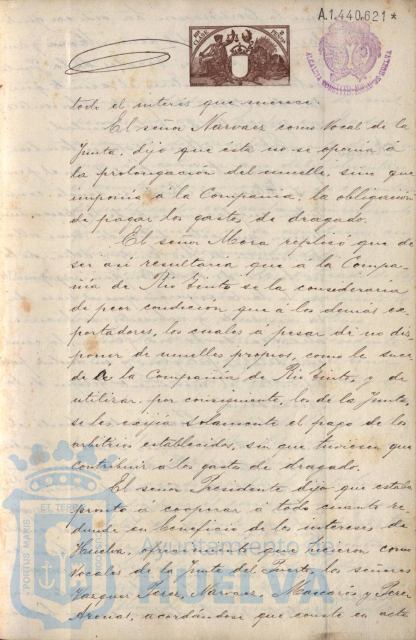 A.1.440.621*
todo el interés que merece.
El señor Narvaez como Vocal de la
Junta, dijo que ésta no se oponía á
la prolongación del muelle, sino que
imponía á la Compañía, la obligación
de pagar los gastos de dragado.
El señor Mora replicó que de
ser así resultaría que á la Compa-
ñía de Rio Tinto se la consideraría
de peor condición que á los demás ex-
portadores, los cuales á pesar de no dis-
poner de muelles propios, como le suce-
de á la Compañía de Rio Tinto, y de
utilizar, por consiguiente, los de la Junta,
se les exijía solamente el pago de los
arbitrios establecidos, sin que tuviesen que
contribuir á los gastos de dragado.
El señor Presidente dijo que estaba
pronto a cooperar a todo cuanto re-
dunde en beneficio de los intereses de
Huelva, ofrecimiento que hicieron como
Vocales de la Junta del Puerto los señores
Vazquez Perez, Narvaez, Mascarós y Perez
Arenas, acordándose que conste en acta
PORTUS MARIS
ET TERRÆ
Ayuntamiento de
HUELVA